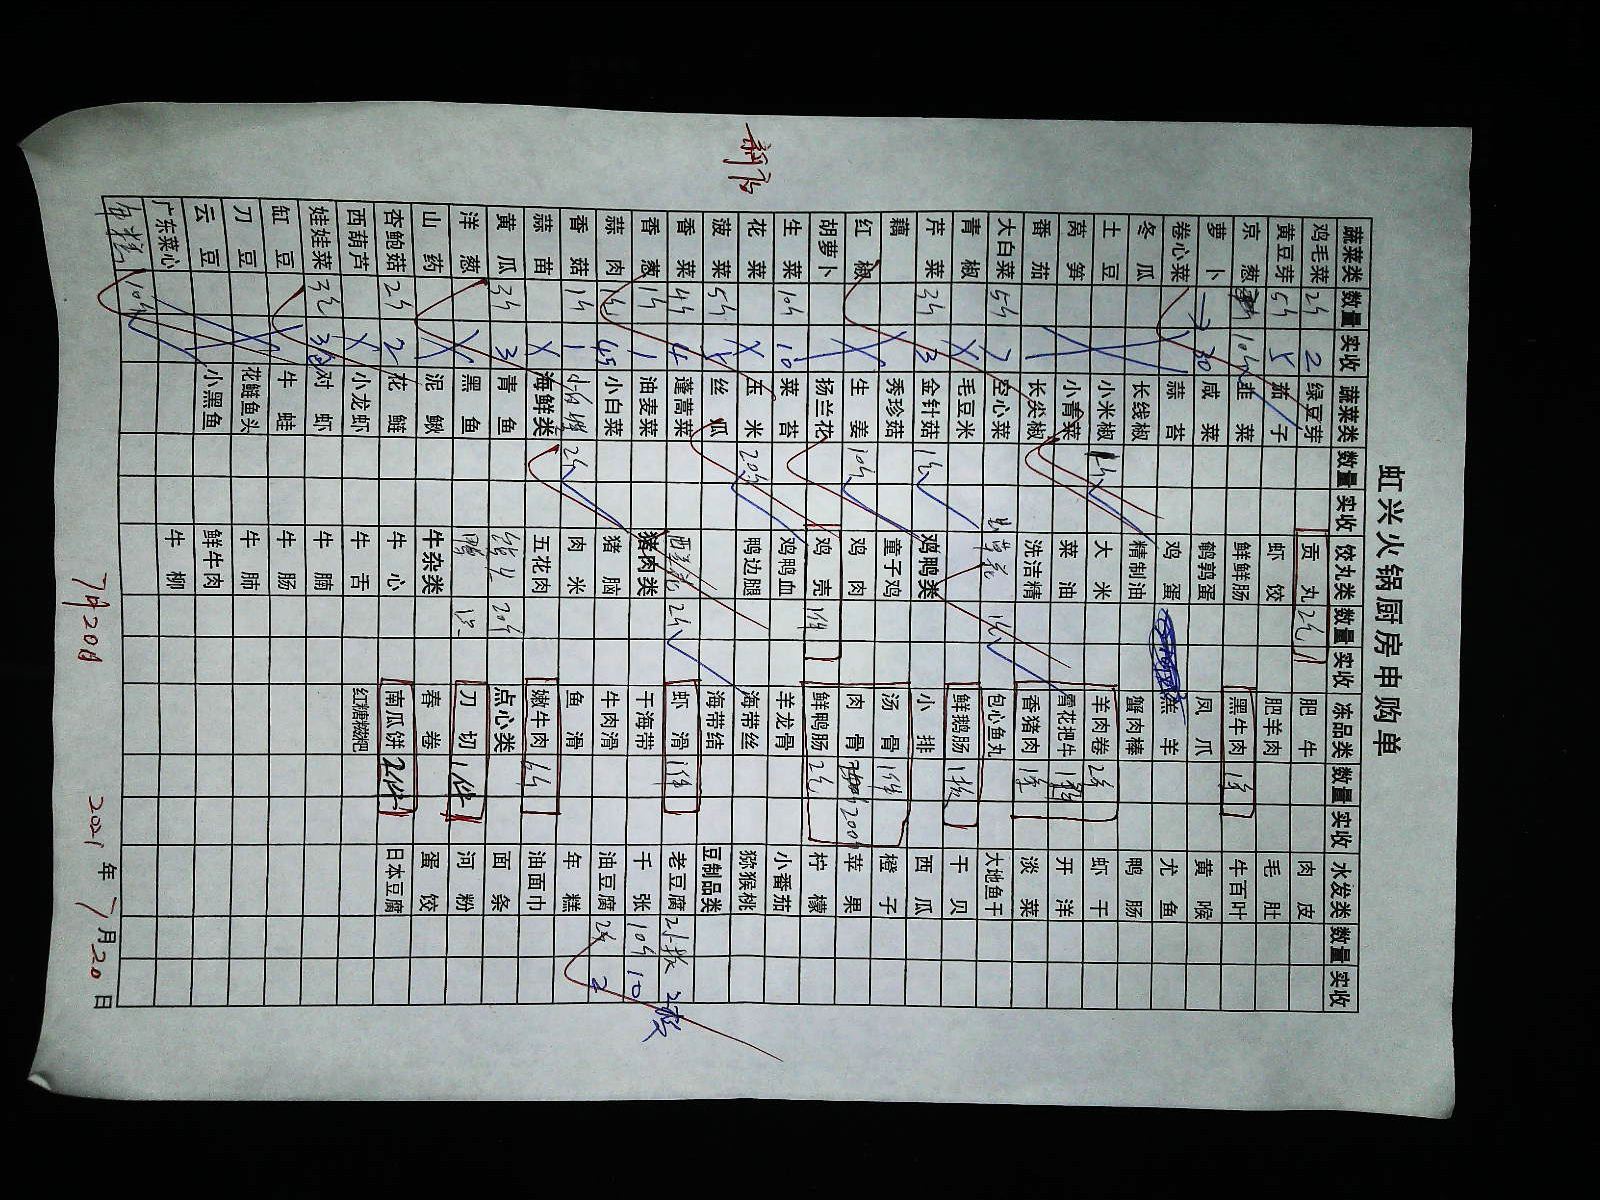 新店
虹兴火锅厨房申购单
蔬菜类 数量 实收 蔬菜类 数量 实收 饺丸类 数量 实收 冻品类 数量 实收 水发类 数量 实收
鸡毛菜 2斤 2 绿豆芽 贡丸 2包 肥牛 肉皮
黄豆芽 5斤 5 茄子 虾饺 肥羊肉 毛肚
京葱 10斤 韭菜 鲜鲜肠 黑牛肉 牛百叶
萝卜 30 咸菜 鹌鹑蛋 凤爪 黄喉
卷心菜 蒜苔 鸡蛋 羔羊 尤鱼
冬瓜 长线椒 精制油 蟹肉棒 鸭肠
土豆 小米椒 大米 羊肉卷 虾干
莴笋 小青菜 菜油 雪花把牛 开洋
番茄 长尖椒 洗洁精 香猪肉 淡菜
大白菜 5斤 7 空心菜 包心鱼丸 大地鱼干
青椒 毛豆米 鲜鹅肠 干贝
芹菜 3斤 3 金针菇 鸡鸭类 小排 西瓜
藕 秀珍菇 童子鸡 汤骨 1件 橙子
红椒 生姜 10斤 鸡肉 肉骨 苹果
胡萝卜 杨兰花 鸡壳 1件 鲜鸭肠 柠檬
生菜 10斤 10 菜苔 鸡鸭血 羊龙骨 小番茄
花菜 玉米 20斤 鸭边腿 海带丝 猕猴桃
菠菜 5斤 丝瓜 海带结 豆制品类
香菜 4斤 4 蓬蒿菜 西兰花 2斤 虾滑 1件 老豆腐 2板
香葱 1斤 1 油麦菜 猪肉类 干海带 千张 10斤 10
蒜肉 小白菜 猪脑 牛肉滑 油豆腐 2斤 2
香菇 1斤 1 2斤 肉米 鱼滑 年糕
蒜苗 海鲜类 五花肉 嫩牛肉 油面巾
黄瓜 3斤 3 青鱼 20斤 点心类 面条
洋葱 黑鱼 刀切 1件 河粉
山药 泥鳅 牛杂类 春卷 蛋饺
杏鲍菇 2斤 2 花鲢 牛心 南瓜饼 2件 日本豆腐
西葫芦 小龙虾 牛舌 红糖糍粑
娃娃菜 3包 对虾 牛腩
缸豆 牛蛙 牛肠
刀豆 花鲢鱼头 牛肺
云豆 小黑鱼 鲜牛肉
广东菜心 牛柳
年糕 10斤
7月20日 2021年7月20日